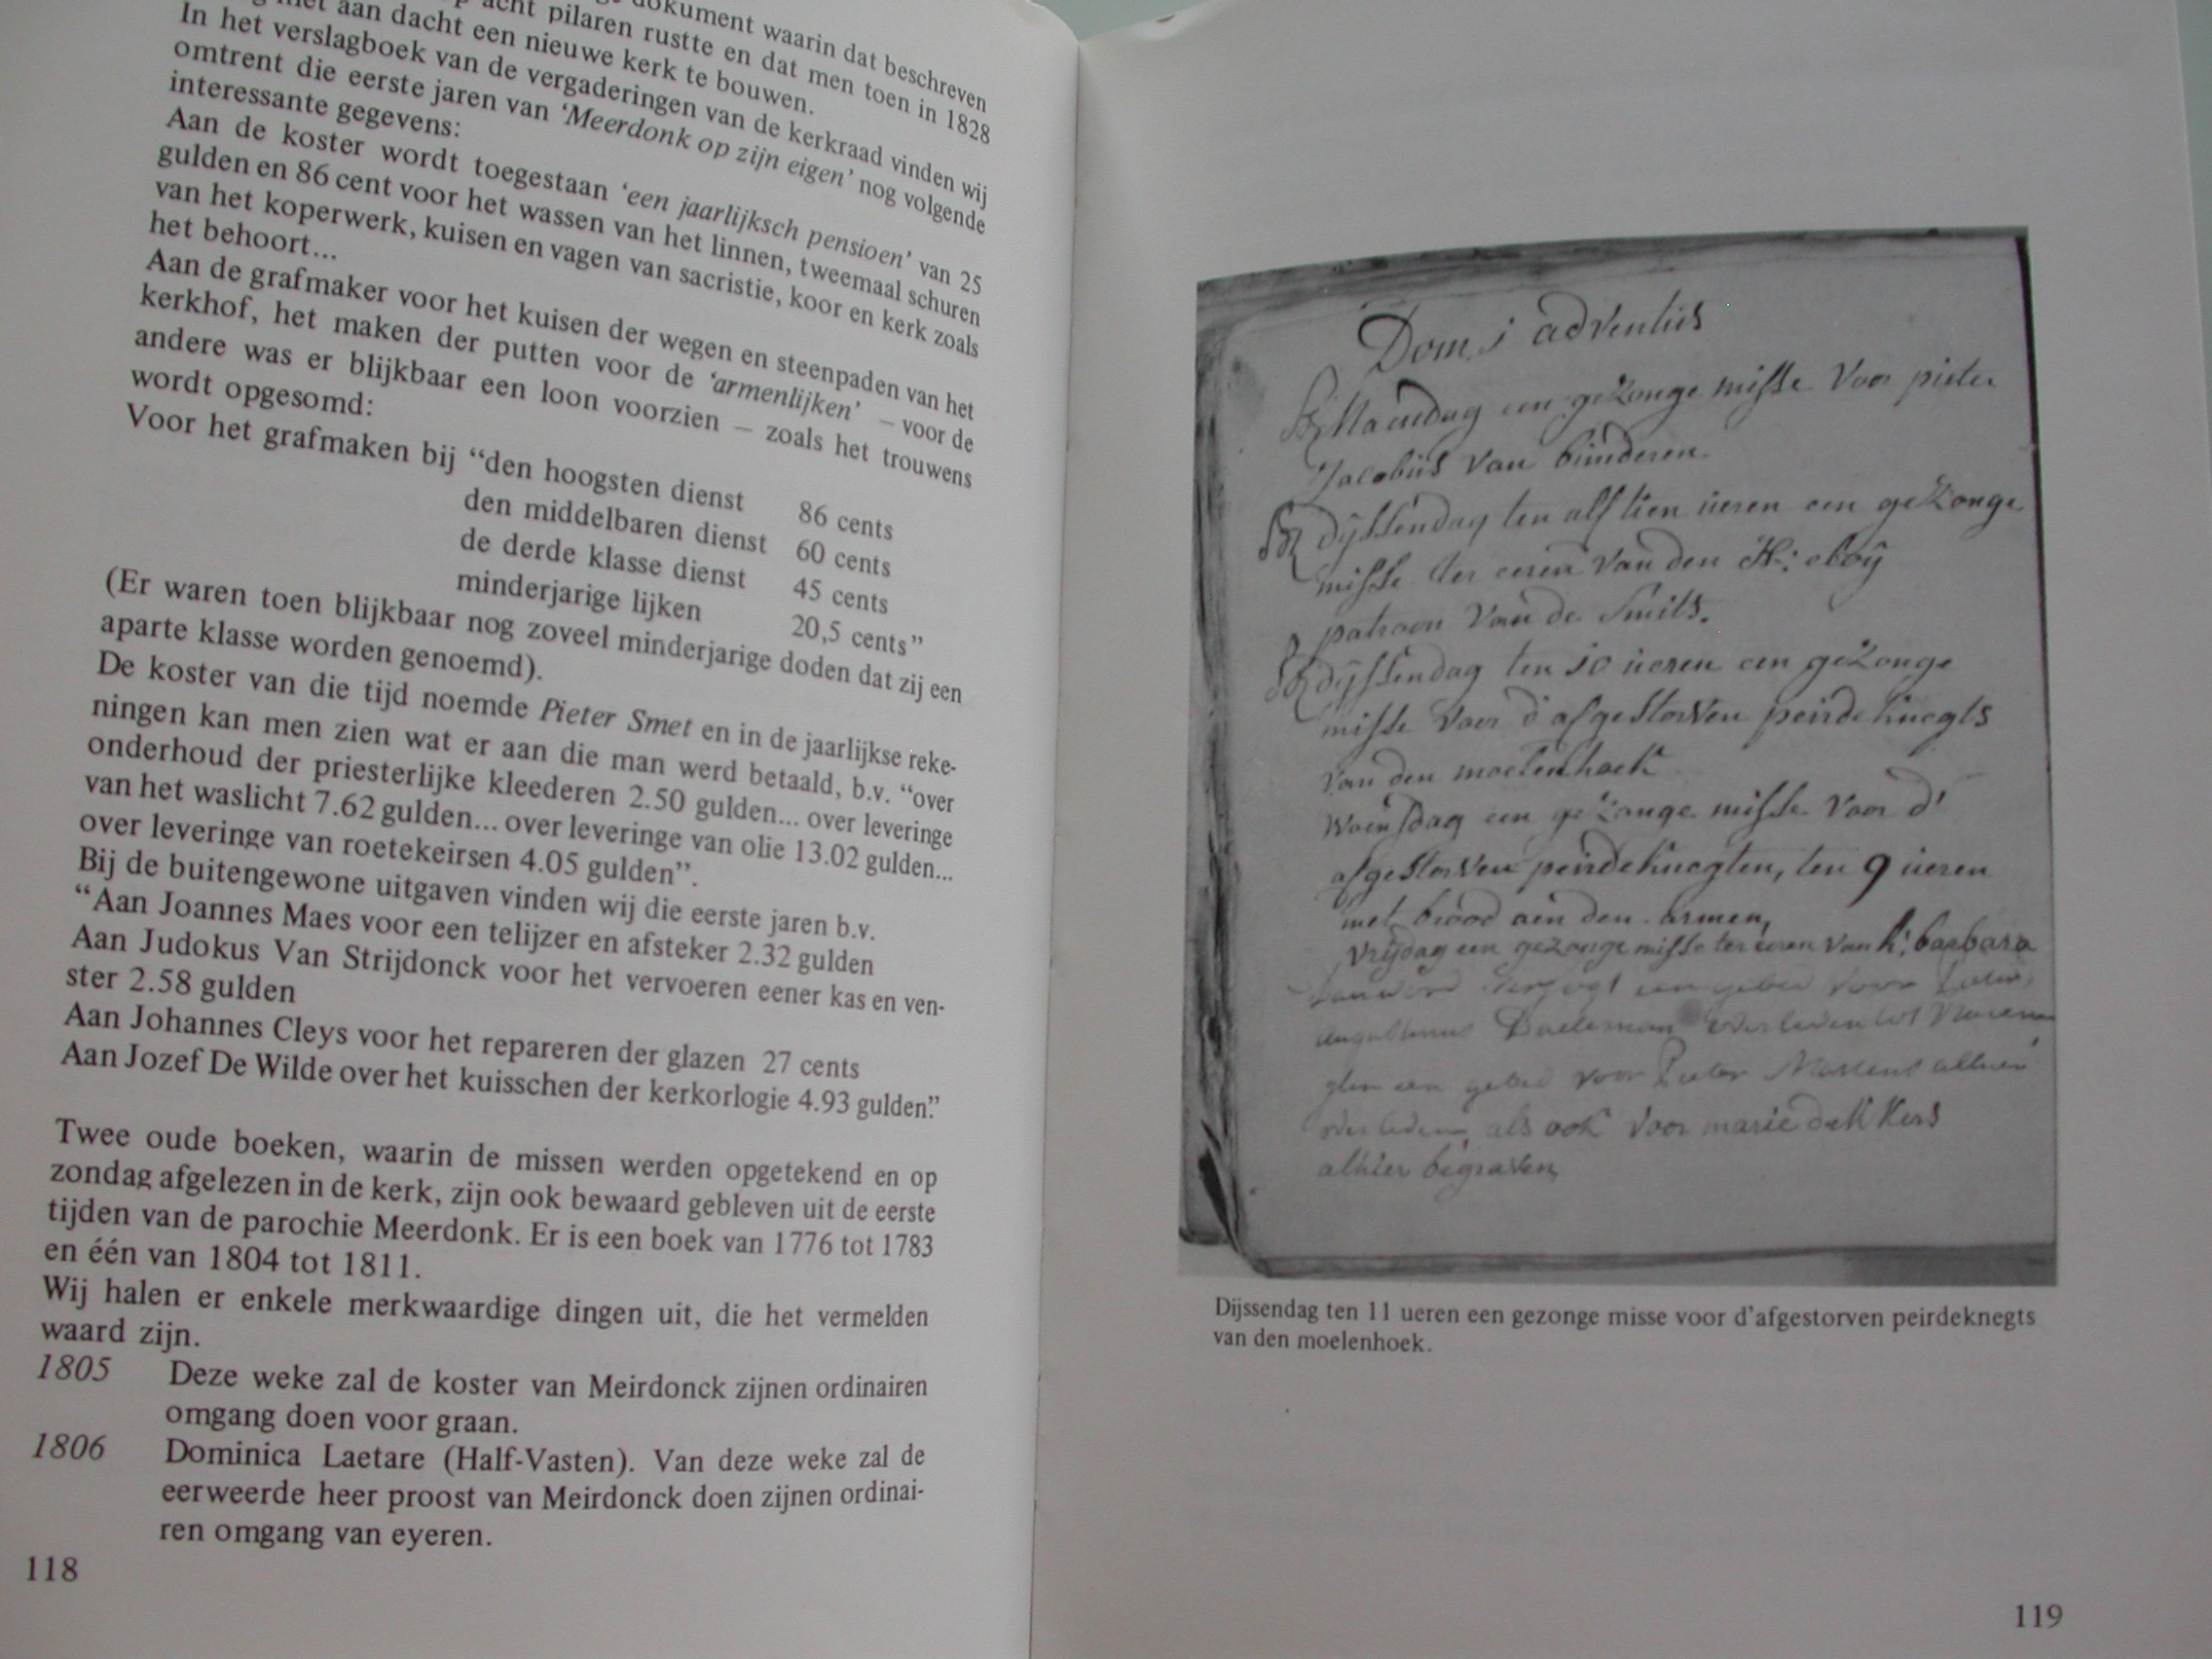 dokument waarin dat beschreven
acht pilaren rustte en dat men toen in 1828
aan dacht een nieuwe kerk te bouwen.
In het verslagboek van de vergaderingen van de kerkraad vinden wij
omtrent die eerste jaren van ‘Meerdonk op zijn eigen’ nog volgende
interessante gegevens:
Aan de koster wordt toegestaan ‘een jaarlijksch pensioen’ van 25
gulden en 86 cent voor het wassen van het linnen, tweemaal schuren
van het koperwerk, kuisen en vagen van sacristie, koor en kerk zoals
het behoort...
Aan de grafmaker voor het kuisen der wegen en steenpaden van het
kerkhof, het maken der putten voor de ‘armenlijken’ – voor de
andere was er blijkbaar een loon voorzien – zoals het trouwens
wordt opgesomd:
Voor het grafmaken bij “den hoogsten dienst 86 cents
den middelbaren dienst 60 cents
de derde klasse dienst 45 cents
minderjarige lijken 20,5 cents”
(Er waren toen blijkbaar nog zoveel minderjarige doden dat zij een
aparte klasse worden genoemd).
De koster van die tijd noemde Pieter Smet en in de jaarlijkse reke-
ningen kan men zien wat er aan die man werd betaald, b.v. “over
onderhoud der priesterlijke kleederen 2.50 gulden... over leveringe
van het waslicht 7.62 gulden... over leveringe van olie 13.02 gulden...
over leveringe van roetekeirsen 4.05 gulden”.
Bij de buitengewone uitgaven vinden wij die eerste jaren b.v.
“Aan Joannes Maes voor een telijzer en afsteker 2.32 gulden
Aan Judokus Van Strijdonck voor het vervoeren eener kas en ven-
ster 2.58 gulden
Aan Johannes Cleys voor het repareren der glazen 27 cents
Aan Jozef De Wilde over het kuisschen der kerkorlogie 4.93 gulden.”
Twee oude boeken, waarin de missen werden opgetekend en op
zondag afgelezen in de kerk, zijn ook bewaard gebleven uit de eerste
tijden van de parochie Meerdonk. Er is een boek van 1776 tot 1783
en één van 1804 tot 1811.
Wij halen er enkele merkwaardige dingen uit, die het vermelden
waard zijn.
1805 Deze weke zal de koster van Meirdonck zijnen ordinairen
omgang doen voor graan.
1806 Dominica Laetare (Half-Vasten). Van deze weke zal de
eerweerde heer proost van Meirdonck doen zijnen ordinai-
ren omgang van eyeren.
118
Dom. i adventus
Maendag een gezonge misse voor pieter
Jacobus van
dijssendag ten alf tien ueren een gezonge
misse ter eeren van den H: eloÿ
patroon van de smits.
dijssendag ten 10 ueren een gezonge
misse voor d'afgestorven peirdeknegts
van den moelenhoek
woensdag een gezonge misse voor d'
afgestorven peirdeknegten, ten 9 ueren
met brood aen den armen,
vrijdag een gezonge misse ter eeren van h: barbara
een gebed voor
Daeleman overleden tot
een gebed voor Pieter Martens alhier
overleden, als ook voor marie dekkers
alhier begraven
Dijssendag ten 11 ueren een gezonge misse voor d'afgestorven peirdeknegts
van den moelenhoek.
119